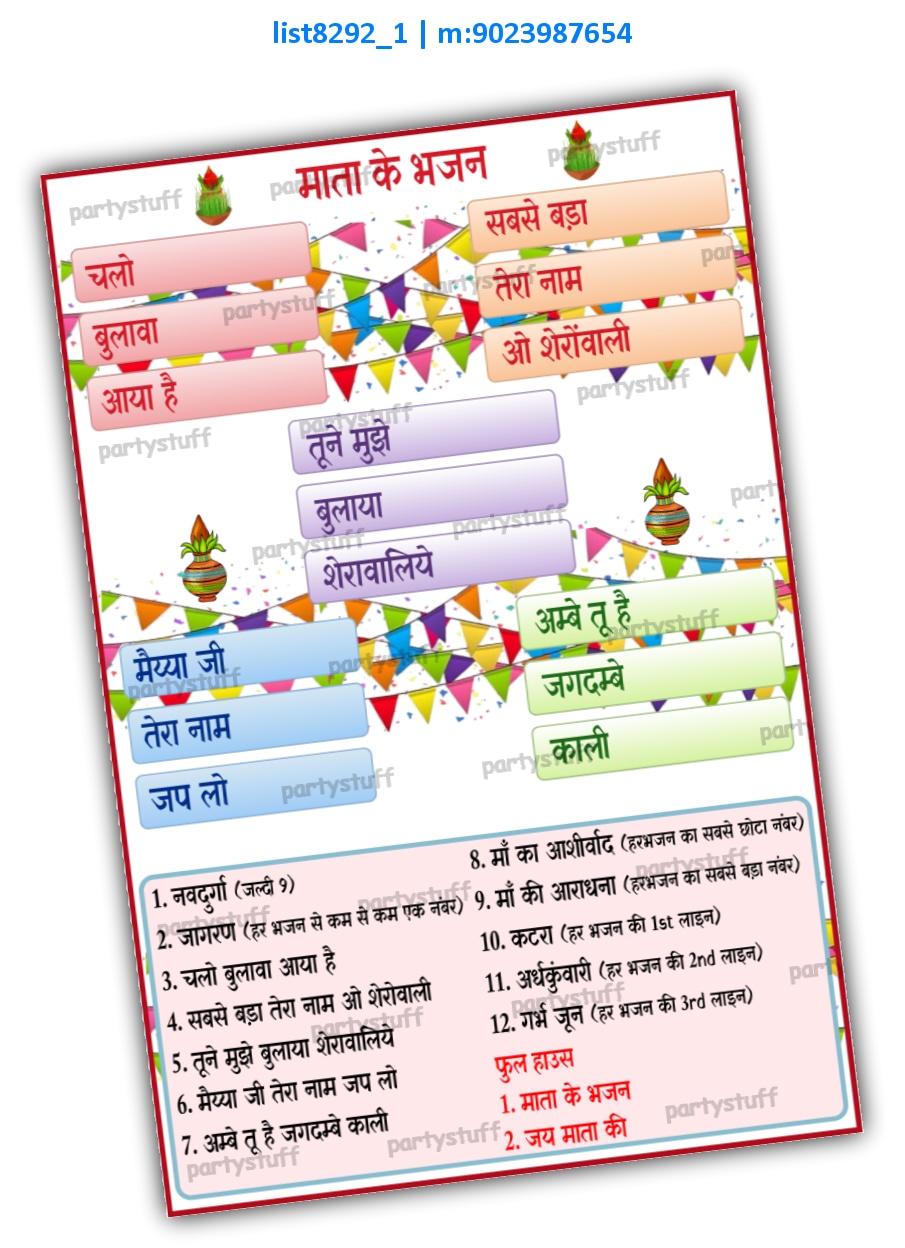 list8292_1 | m:9023987654
माता के भजन
चलो
बुलावा
आया है
सबसे बड़ा
तेरा नाम
ओ शेरोंवाली
तूने मुझे
बुलाया
शेरावालिये
मैय्या जी
तेरा नाम
जप लो
अम्बे तू है
जगदम्बे
काली
1. नवदुर्गा (जल्दी 9)
2. जागरण (हर भजन से कम से कम एक नंबर)
3. चलो बुलावा आया है
4. सबसे बड़ा तेरा नाम ओ शेरोवाली
5. तूने मुझे बुलाया शेरावालिये
6. मैय्या जी तेरा नाम जप लो
7. अम्बे तू है जगदम्बे काली
8. माँ का आशीर्वाद (हरभजन का सबसे छोटा नंबर)
9. माँ की आराधना (हरभजन का सबसे बड़ा नंबर)
10. कटरा (हर भजन की 1st लाइन)
11. अर्धकुंवारी (हर भजन की 2nd लाइन)
12. गर्भ जून (हर भजन की 3rd लाइन)
फुल हाउस
1. माता के भजन
2. जय माता की
partystuff